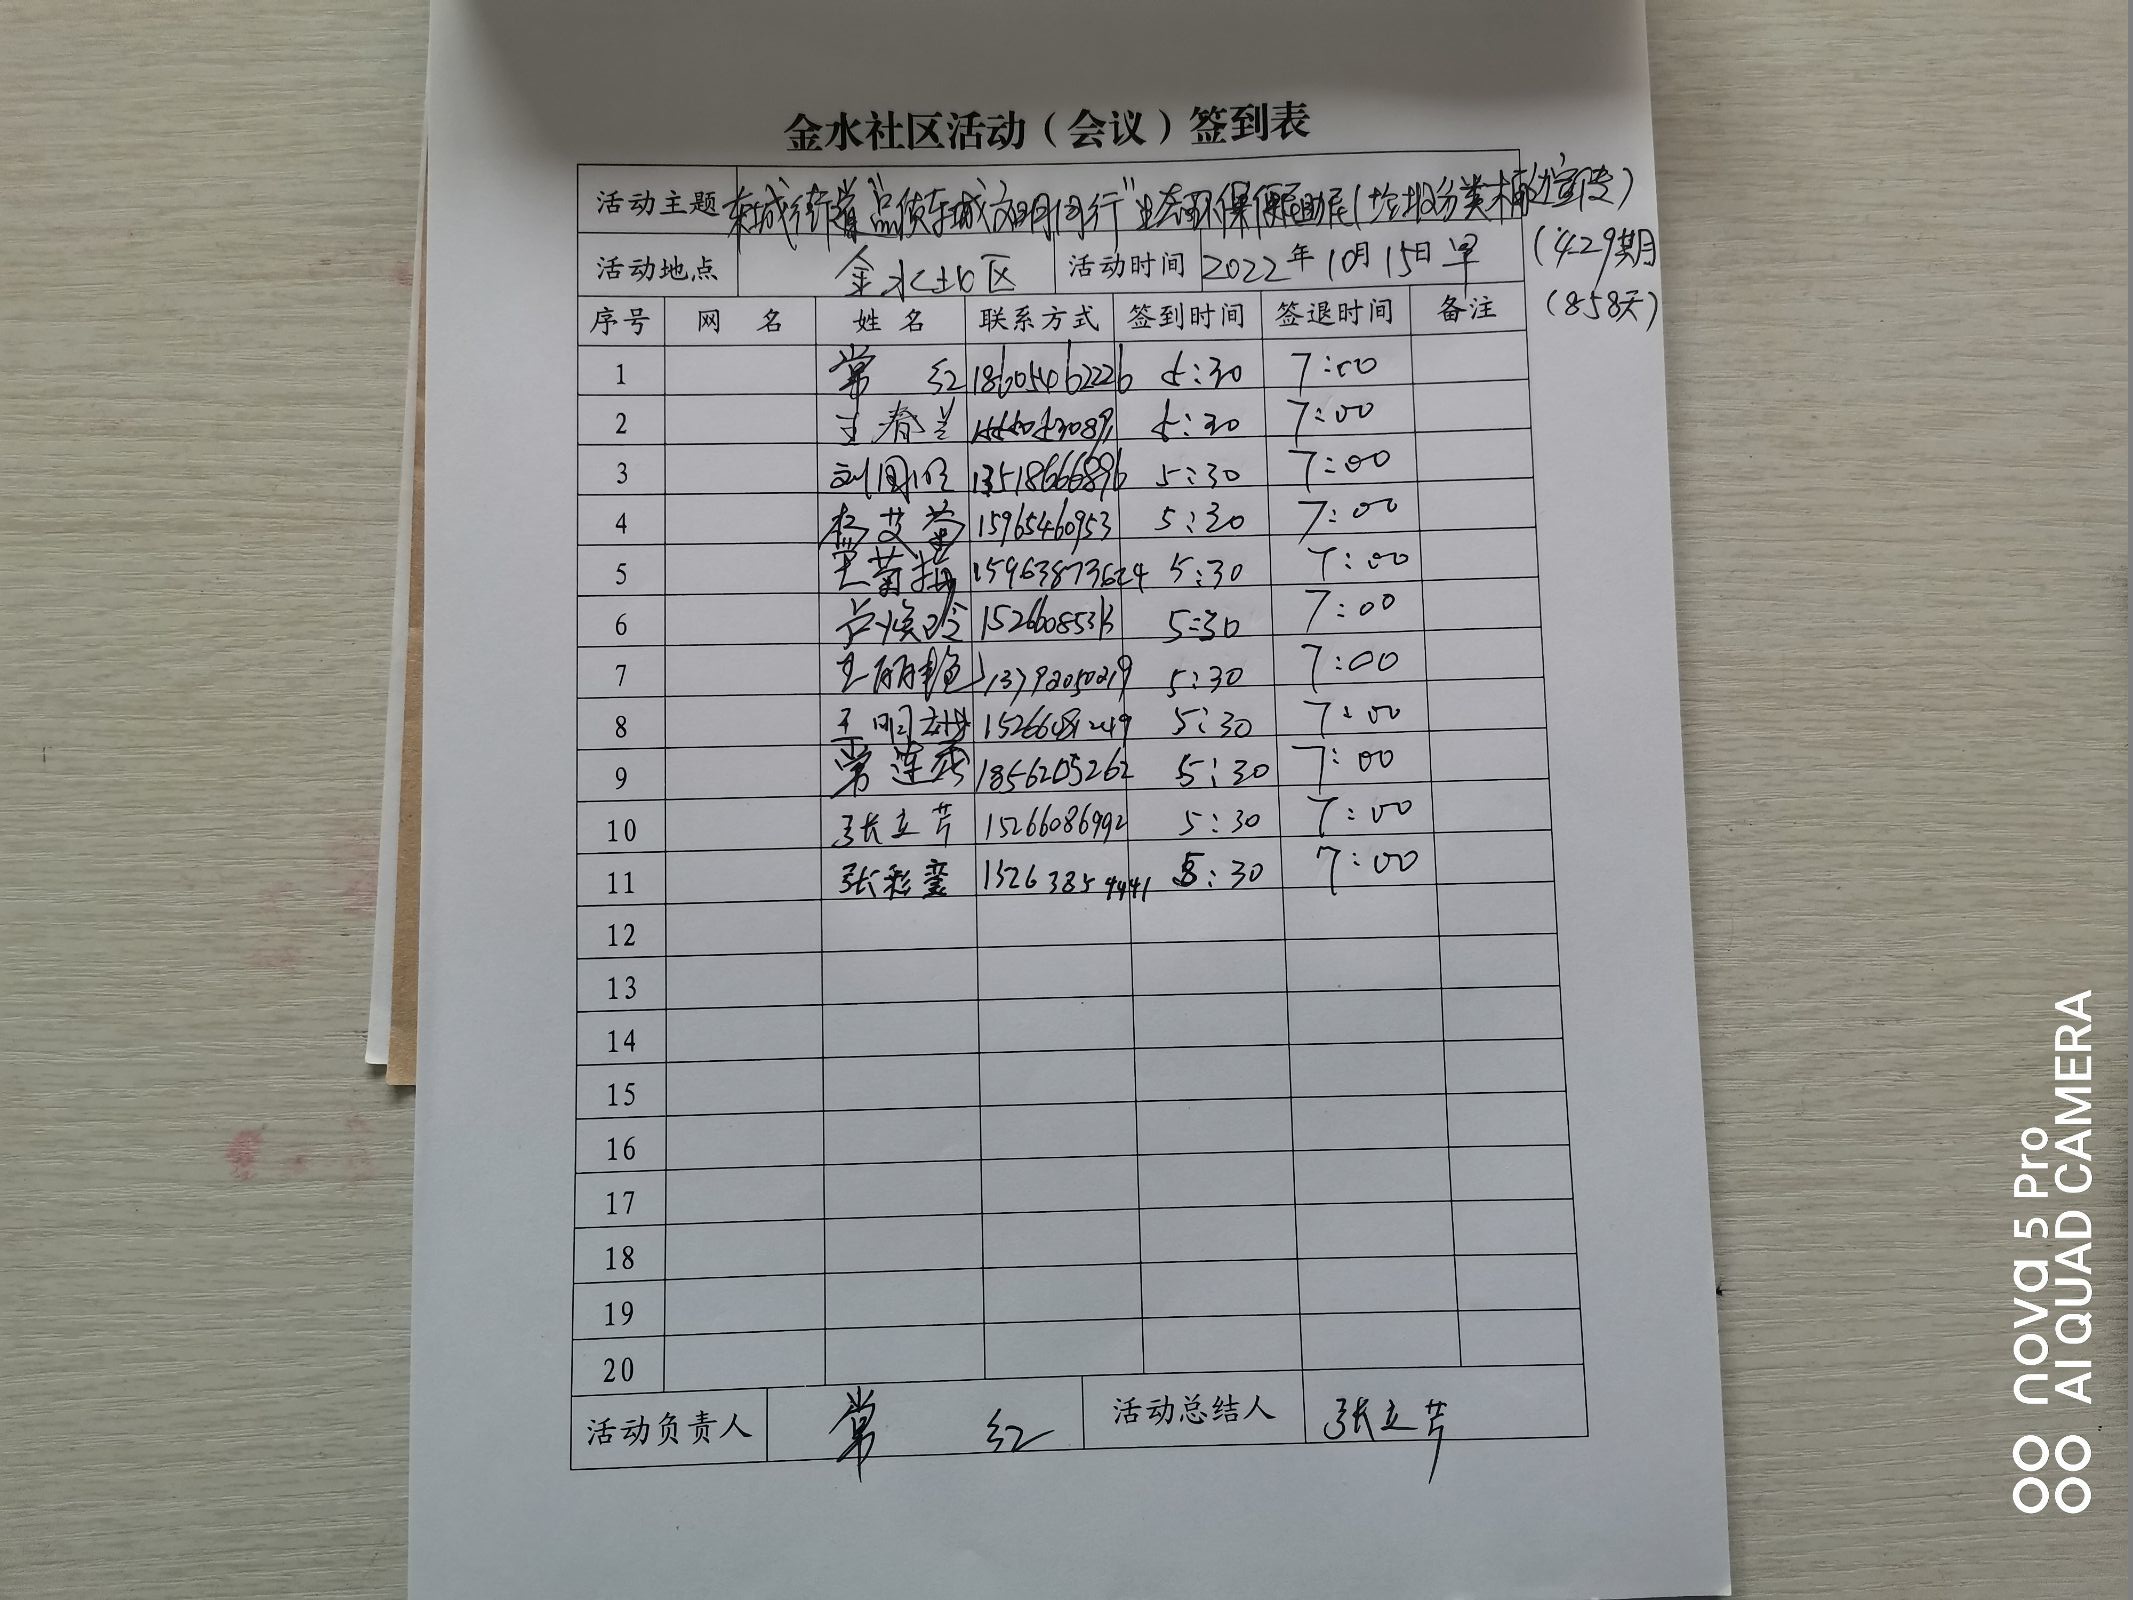 金水社区活动（会议）签到表
活动主题 东城街道"品质东城 文明同行"生态环保便民助民(垃圾分类桶边宣传)
活动地点 金水社区 活动时间 2022年10月15日早 (429期)
(858天)
序号 网 名 姓 名 联系方式 签到时间 签退时间 备注
1 常 红 18605462226 5:30 7:00
2 王春兰 5:30 7:00
3 13518666896 5:30 7:00
4 15965460953 5:30 7:00
5 15963873624 5:30 7:00
6 5:30 7:00
7 王丽艳 13792050219 5:30 7:00
8 5:30 7:00
9 5:30 7:00
10 张立芹 15266086992 5:30 7:00
11 张彩銮 15263854441 5:30 7:00
12
13
14
15
16
17
18
19
20
活动负责人 常 红 活动总结人 张立芹
nova 5 Pro
AI QUAD CAMERA